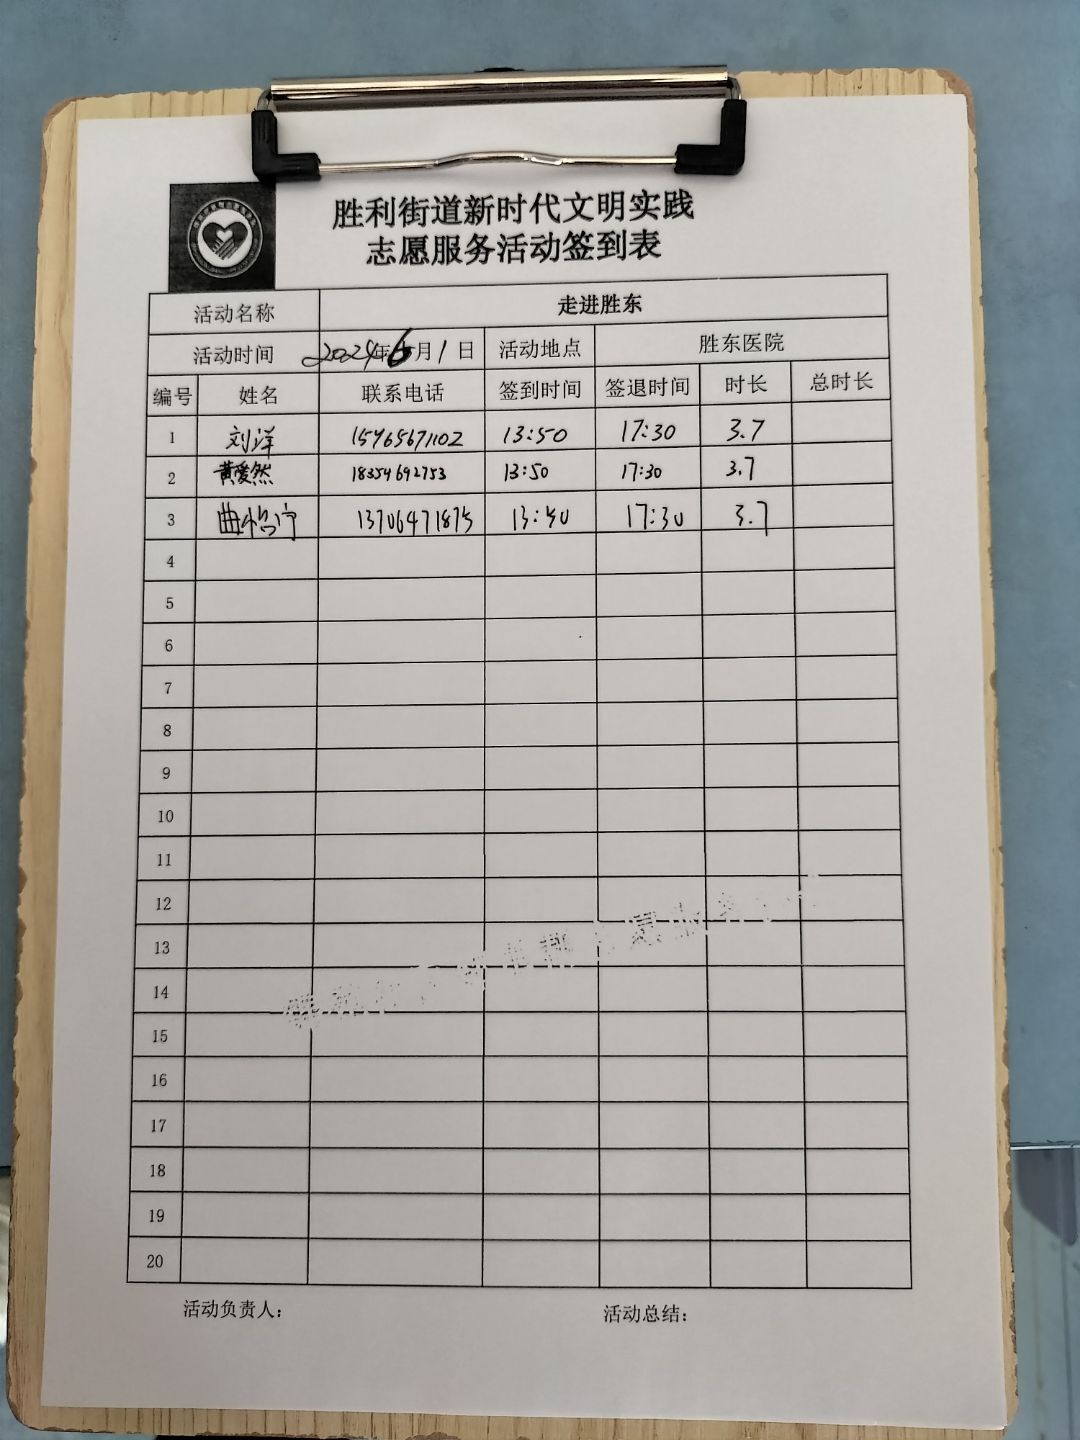 胜利街道新时代文明实践
志愿服务活动签到表
活动名称 走进胜东
活动时间 2024年6月1日 活动地点 胜东医院
编号 姓名 联系电话 签到时间 签退时间 时长 总时长
1 刘洋 15965671102 13:50 17:30 3.7
2 黄爱然 18354692753 13:50 17:30 3.7
3 曲怡宁 13706471875 13:50 17:30 3.7
4
5
6
7
8
9
10
11
12
13
14
15
16
17
18
19
20
活动负责人: 活动总结: